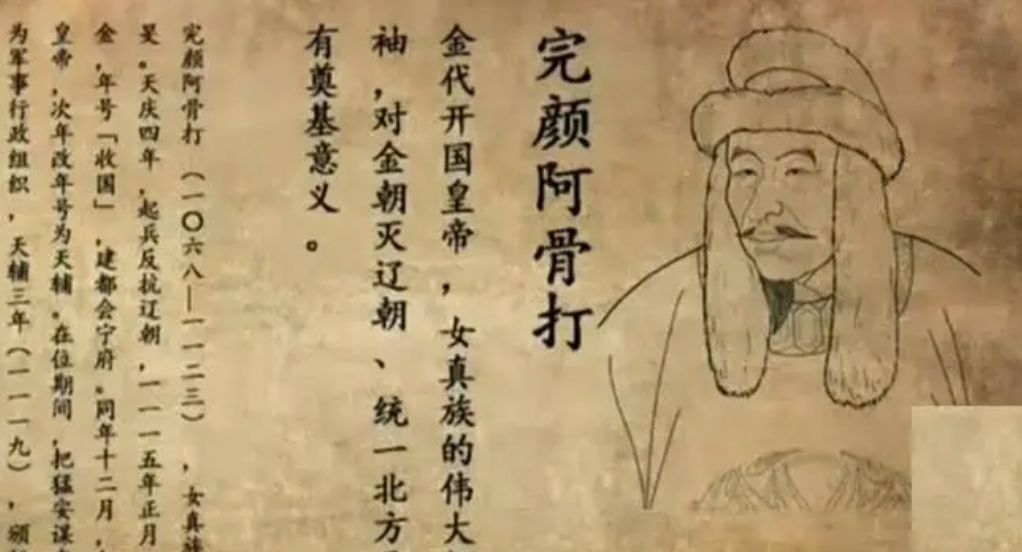 完颜阿骨打
金代开国皇帝，女真族的伟大
袖，对金朝灭辽朝、统一北方
有奠基意义。
完颜阿骨打（一〇六八—一一二三），女真族
旻。天庆四年，起兵反抗辽朝，一一一五年正月
金，年号「收国」，建都会宁府。同年十二月，
皇帝，次年改年号为天辅。在位期间，把猛安谋
为军事行政组织，天辅三年（一一一九），颁